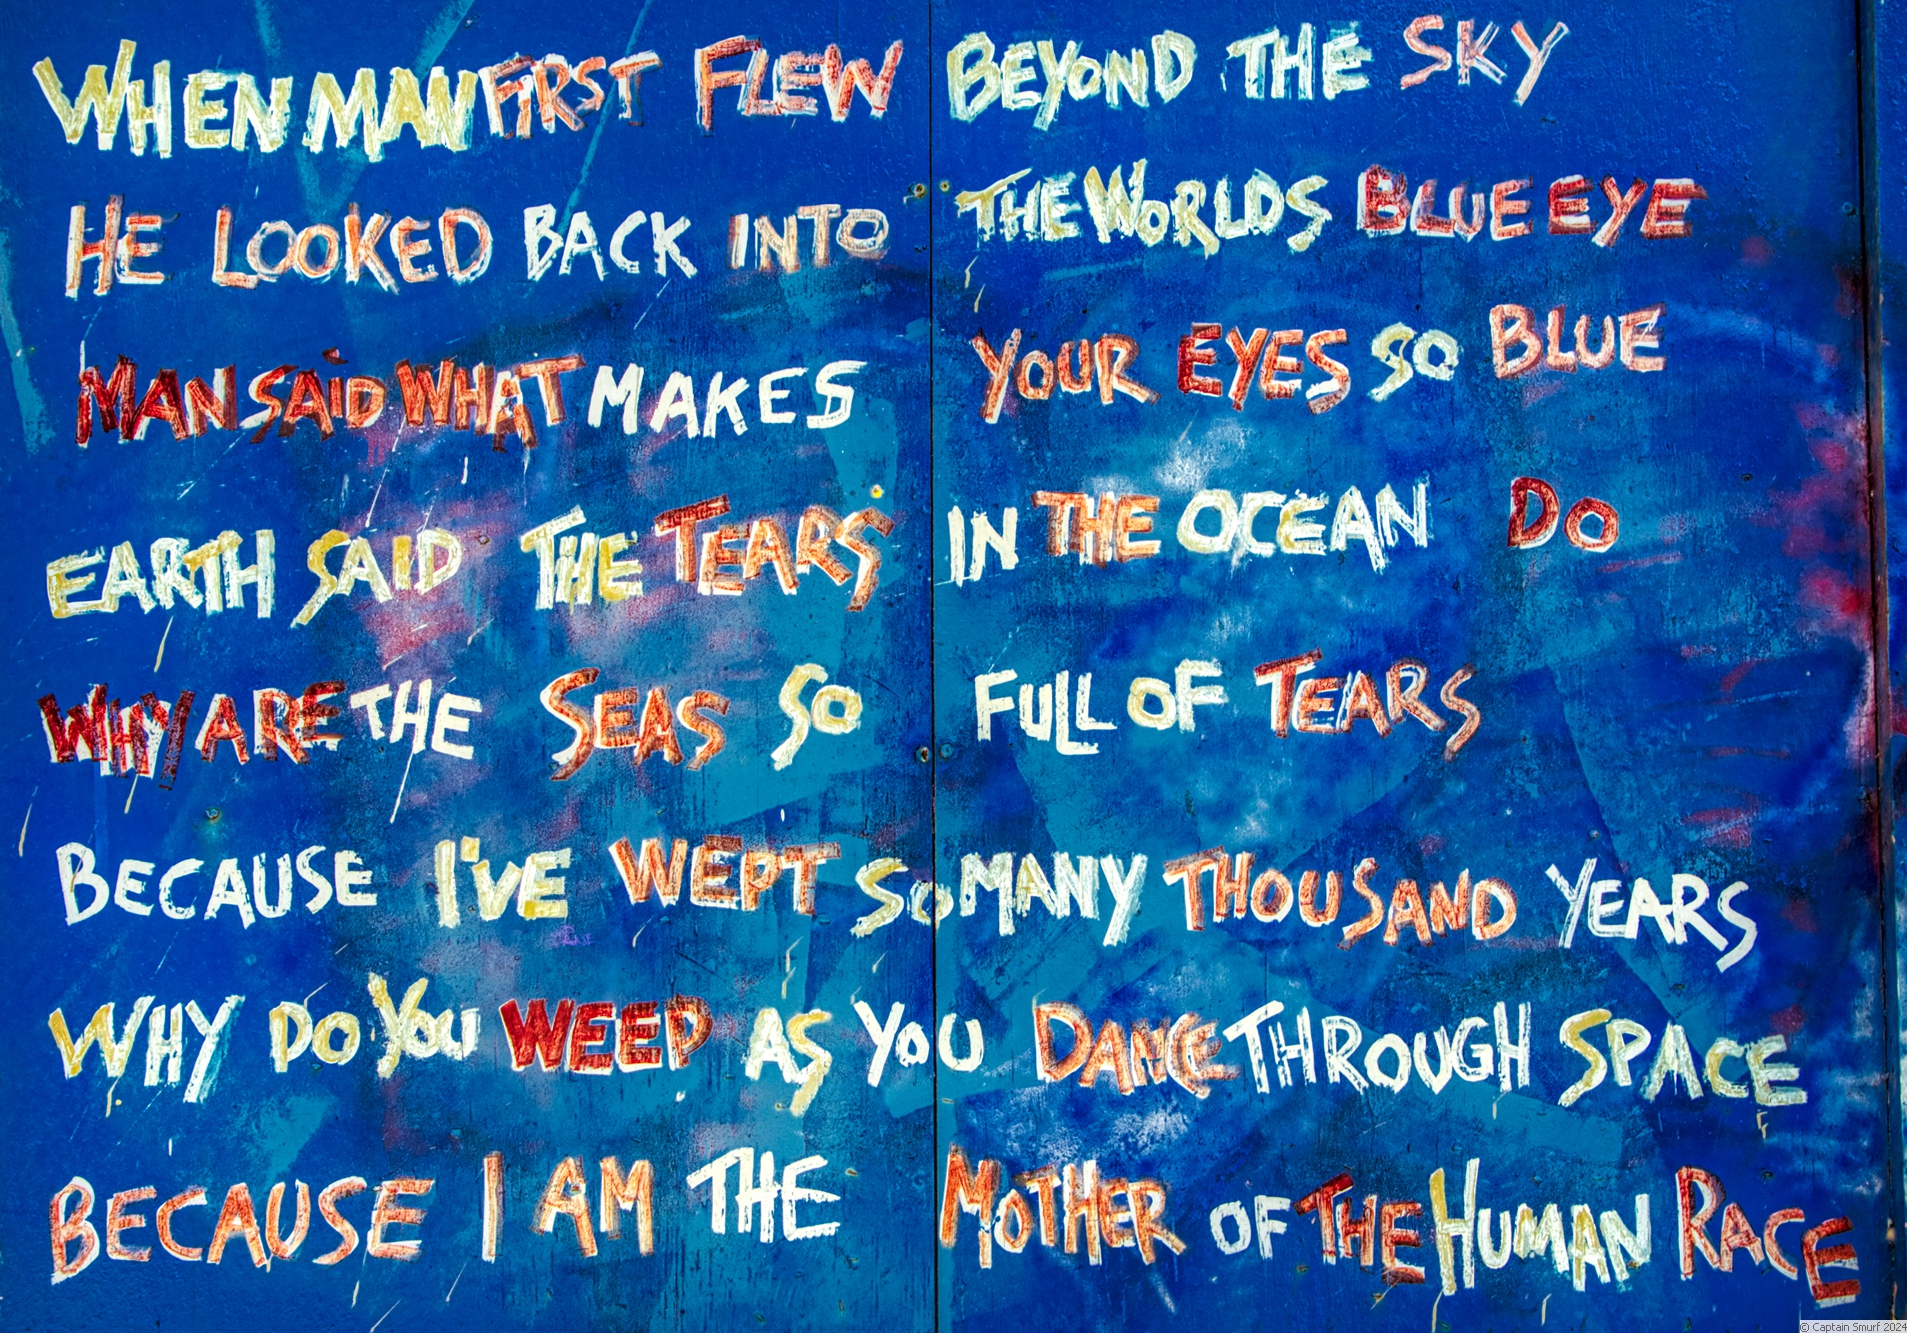 WHEN MAN FIRST FLEW BEYOND THE SKY
HE LOOKED BACK INTO THE WORLDS BLUE EYE
MAN SAID WHAT MAKES YOUR EYES SO BLUE
EARTH SAID THE TEARS IN THE OCEAN DO
WHY ARE THE SEAS SO FULL OF TEARS
BECAUSE I'VE WEPT SO MANY THOUSAND YEARS
WHY DO YOU WEEP AS YOU DANCE THROUGH SPACE
BECAUSE I AM THE MOTHER OF THE HUMAN RACE
© Captain Smurf 2024